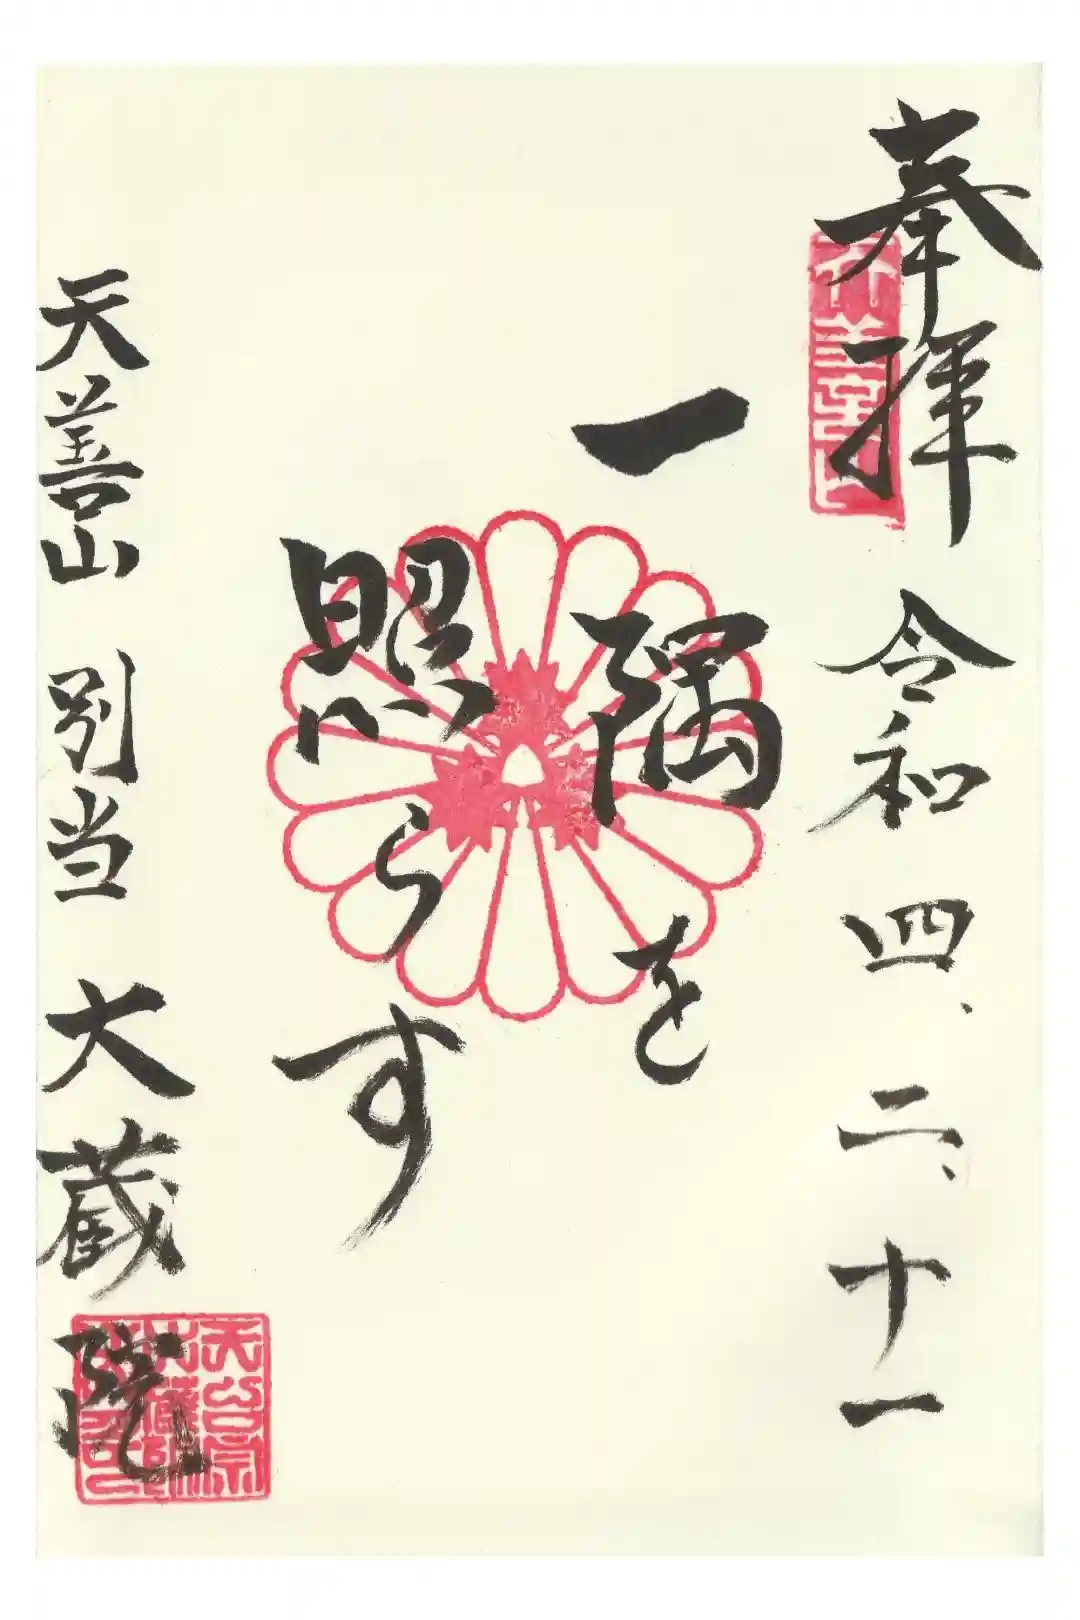 奉拝
令和四、二、十一
一隅を
照らす
天善山 別当 大蔵院
天台宗